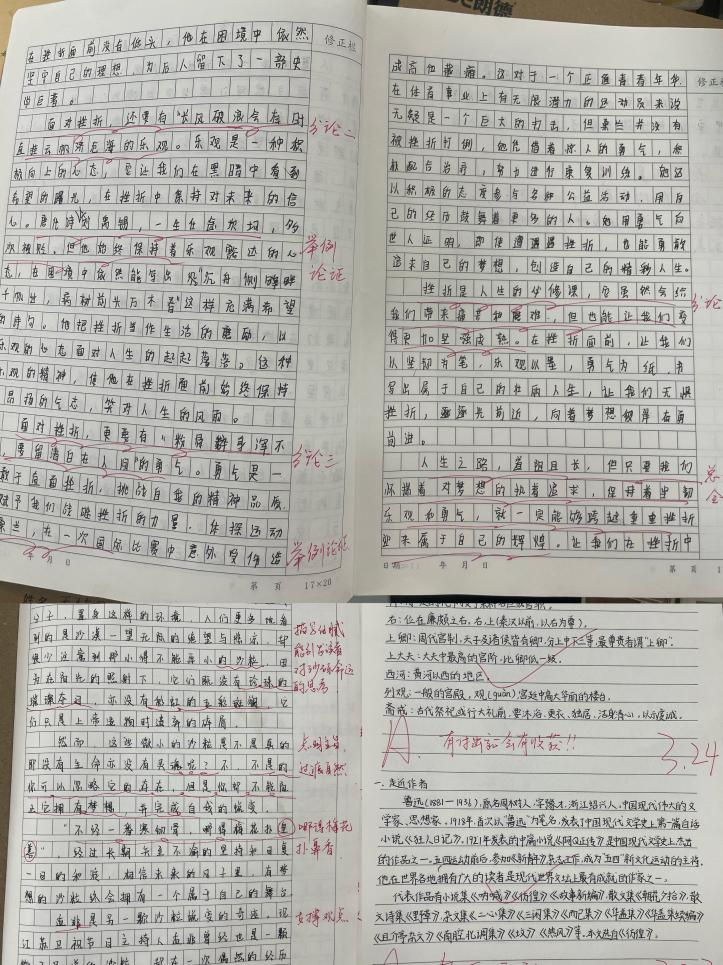 在挫折面前没有低头，他在困境中依然
坚守自己的理想，为后人留下了一部史
学巨著。
面对挫折，还要有"长风破浪会有时
直挂云帆济沧海的乐观。乐观是一种积
极向上的心态，它让我们在黑暗中看到
希望的曙光，在挫折中保持对未来的信
心。唐代诗刘禹锡，一生仕途坎坷，多
次被贬。但他始终保持着乐观豁达的心
态，在困境中依然能写出"沉舟侧畔
千帆过，病树前头万木春"这样充满希望
的诗句。他把挫折当作生活的磨砺，以
乐观的心态面对人生的起起落落。这种
乐观的精神，使他在挫折面前始终保持
昂扬的气态，笑对人生的风雨。
面对挫折，更要有"粉骨碎身浑不
怕，要留清白在人间"的勇气。勇气是一
敢于直面挫折，挑战自我的精神品质
赋予我们战胜挫折的力量。体操运动
桑兰，在一次国际比赛中意外受伤造
年 月 日
第 页 17×20
修正栏
分论二
举例
论证
分论三
举例论证
成高位截瘫。这对于一个正值青春年华
在体育事业上有无限潜力的运动员来说
无疑是一个巨大的打击，但桑兰并没有
被挫折打倒，她凭借着惊人的勇气，积
极配合治疗，努力进行康复训练。她还
以积极的态度参与各种公益活动，用自
己的经历鼓舞着更多的人。她用勇气向
世人证明，即使遭遇挫折，也能勇敢
追求自己的梦想，创造自己的精彩人生。
挫折是人生的必修课，它虽然会给
我们带来痛苦和磨难，但也能让我们变
得更加坚强成熟。在挫折面前，让我们
以坚韧为笔，乐观以墨，勇气为纸，书
写出属于自己的壮丽人生，让我们无惧
挫折，逐光前进，向着梦想彼岸奋勇
前进。
人生之路，道阻且长，但只要我们
怀揣着对梦想的执着追求，保持着坚韧
乐观和勇气，就一定能够跨越重重挫折
迎来属于自己的辉煌。让我们在挫折中
日期 年 月 日
第 页
修正
分论
总
全
置身这样的环境，人们更多地看
到的是沙漠一望无际的绝望与
很少注意到那小得不能再小的沙粒，因
为在阳光的照射下，它们既没有珍珠的
璀璨夺目，亦没有彩虹的五彩斑斓，它
们只是上帝造物时遗弃的碎屑。
然而，这些微小的沙粒是不是真的
那没有生命亦没有灵魂呢？不，不是的
你可以忽略它的存在，但是你却不能阻
止它拥有梦想，并完成自我的蜕变。
"不经一番寒彻骨，哪得梅花扑鼻
香"，经过长期矢志不渝的坚持和日复
一日的
想的沙粒终会拥有一个属于自己的舞台
孟非是另一颗沙粒蜕变的奇迹。说
江苏卫视节目主持人孟非曾经也是一颗
点明主旨，
过渡自然
哪得梅花
扑鼻香
右：位在廉颇之右，右，上（秦汉以前，以右为尊）。
上卿：周代官制，大夫及诸侯皆有卿，分上中下三等，最尊贵者谓"上卿"。
上大夫：大夫中最高的官阶，比卿低一级。
西河：黄河以西的地区
列观：一般的宫殿，观（guàn）宫廷中高大华丽的楼台。
斋戒：古代祭祀或行大礼前，要沐浴、更衣、独居、洁身清心，以示虔诚。
A. 有付出就会有收获！！
3.24
一、走近作者
鲁迅（1881—1936），原名周树人，字豫才，浙江绍兴人，中国现代伟大的文
学家、思想家。1918年，首次以"鲁迅"为笔名，发表了中国现代文学史上第一篇白话
小说《狂人日记》。1921年发表的中篇小说《阿Q正传》是中国现代文学史上杰出
的作品之一。五四运动前后，参加《新青年》杂志工作，成为"五四"新文化运动的主将，
他在世界各地拥有广大的读者是现代世界文坛上最有成就的作家之一。
代表作品有小说集《呐喊》《彷徨》《故事新编》，散文集《朝花夕拾》，散
文诗集《野草》，杂文集《二心集》《三闲集》《而已集》《华盖集》《华盖集续编》
《且介亭杂文》《南腔北调集》《坟》《热风》等。本文选自《彷徨》。